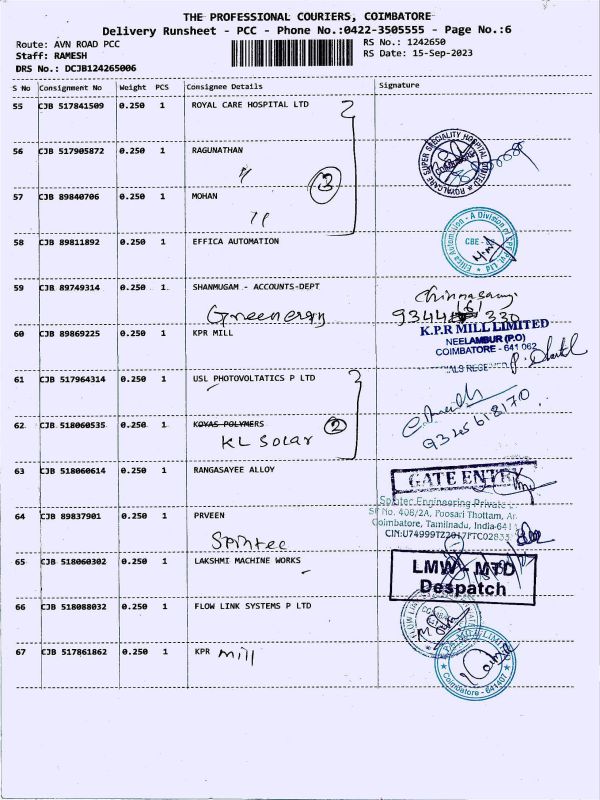 THE PROFESSIONAL COURIERS, COIMBATORE
Delivery Runsheet - PCC - Phone No.:0422-3505555 - Page No.:6
Route: AVN ROAD PCC
RS No.: 1242650
Staff: RAMESH
RS Date: 15-Sep-2023
DRS No.: DCJB124265006
S No Consignment No Weight PCS Consignee Details Signature
55 CJB 517841509 0.250 1 ROYAL CARE HOSPITAL LTD
56 CJB 517905872 0.250 1 RAGUNATHAN
3
57 CJB 89840706 0.250 1 MOHAN
58 CJB 89811892 0.250 1 EFFICA AUTOMATION
CBE
59 CJB 89749314 0.250 1 SHANMUGAM - ACCOUNTS-DEPT
Chinnasamy
Greenergy
60 CJB 89869225 0.250 1 KPR MILL
K.P.R MILL LIMITED
NEELAMBUR (P.O)
COIMBATORE - 641 062
61 CJB 517964314 0.250 1 USL PHOTOVOLTATICS P LTD
62 CJB 518060535 0.250 1 KOVAS POLYMERS
KL Solar
2
9345618170
63 CJB 518060614 0.250 1 RANGASAYEE ALLOY
GATE ENTRY
64 CJB 89837901 0.250 1 PRVEEN
Sprintec
Sprintec Engineering Private
SF No. 408/2A, Poosari Thottam, Ar
Coimbatore, Tamilnadu, India-641
65 CJB 518060302 0.250 1 LAKSHMI MACHINE WORKS
LMW - MTD
Despatch
66 CJB 518088032 0.250 1 FLOW LINK SYSTEMS P LTD
67 CJB 517861862 0.250 1 KPR mill
K.P.R. MILL LIMITED
Coimbatore - 641407